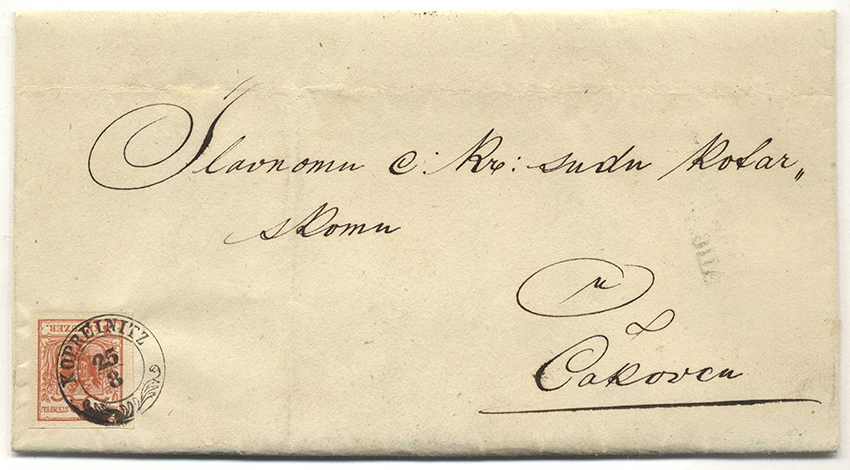 Slavnomu c: kr: sudu kotar„
skomu
u
Čakovcu
KOPREINITZ
25
8